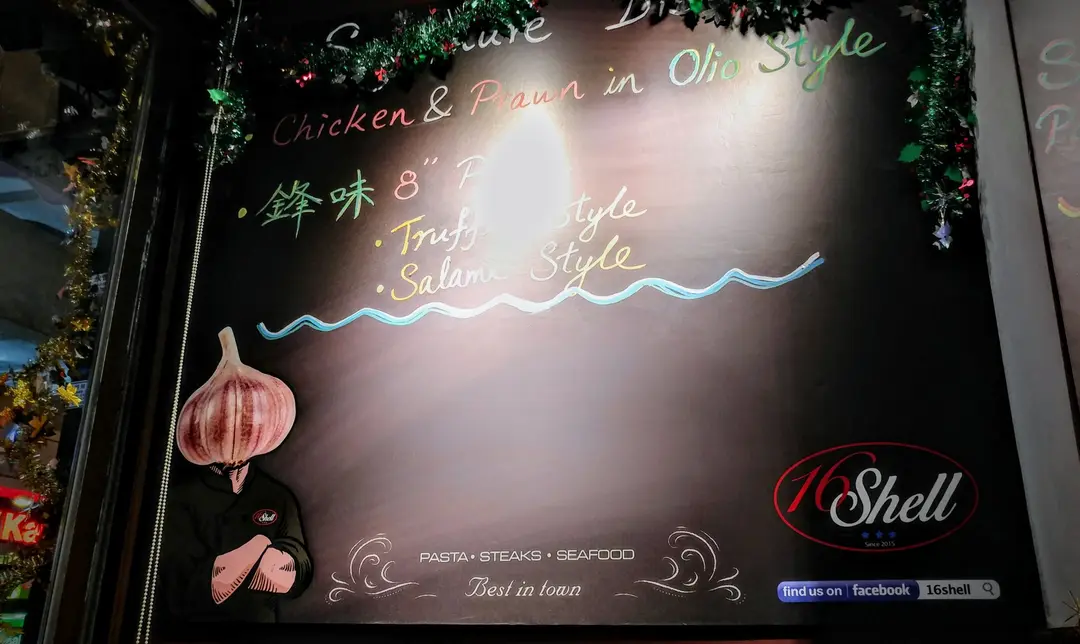 Chicken & Prawn in Olio Style
• 鋒味 8"
Style
• Salami Style
16 Shell
Since 2015
Shell
PASTA • STEAKS • SEAFOOD
Best in town
find us on facebook 16shell
Ka